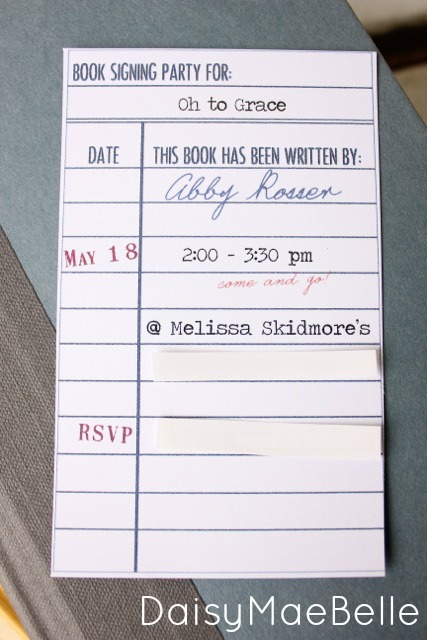 BOOK SIGNING PARTY FOR:
Oh to Grace
DATE THIS BOOK HAS BEEN WRITTEN BY:
Abby Rosser
MAY 18 2:00 - 3:30 pm
come and go!
@ Melissa Skidmore's
RSVP
DaisyMaeBelle